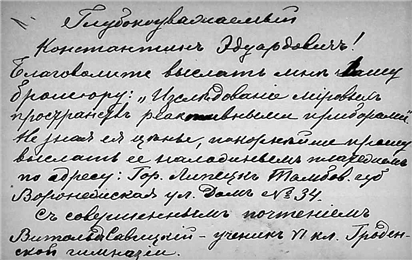 Глубокоуважаемый
Константинъ Эдуардовичъ!
Благоволите выслать мнѣ Вашу
брошюру: „Изслѣдованіе міровыхъ
пространствъ реактивными приборами.
Не зная ея цѣны, покорнѣйше прошу
выслать ее наложеннымъ платежомъ
по адресу: Гор. Липецкъ Тамбов. губ
Воронежская ул. Домъ № 34.
Съ совершеннымъ почтеніемъ
Витольдъ Савицкій - ученикъ VI кл. Гроднен-
ской гимназіи.